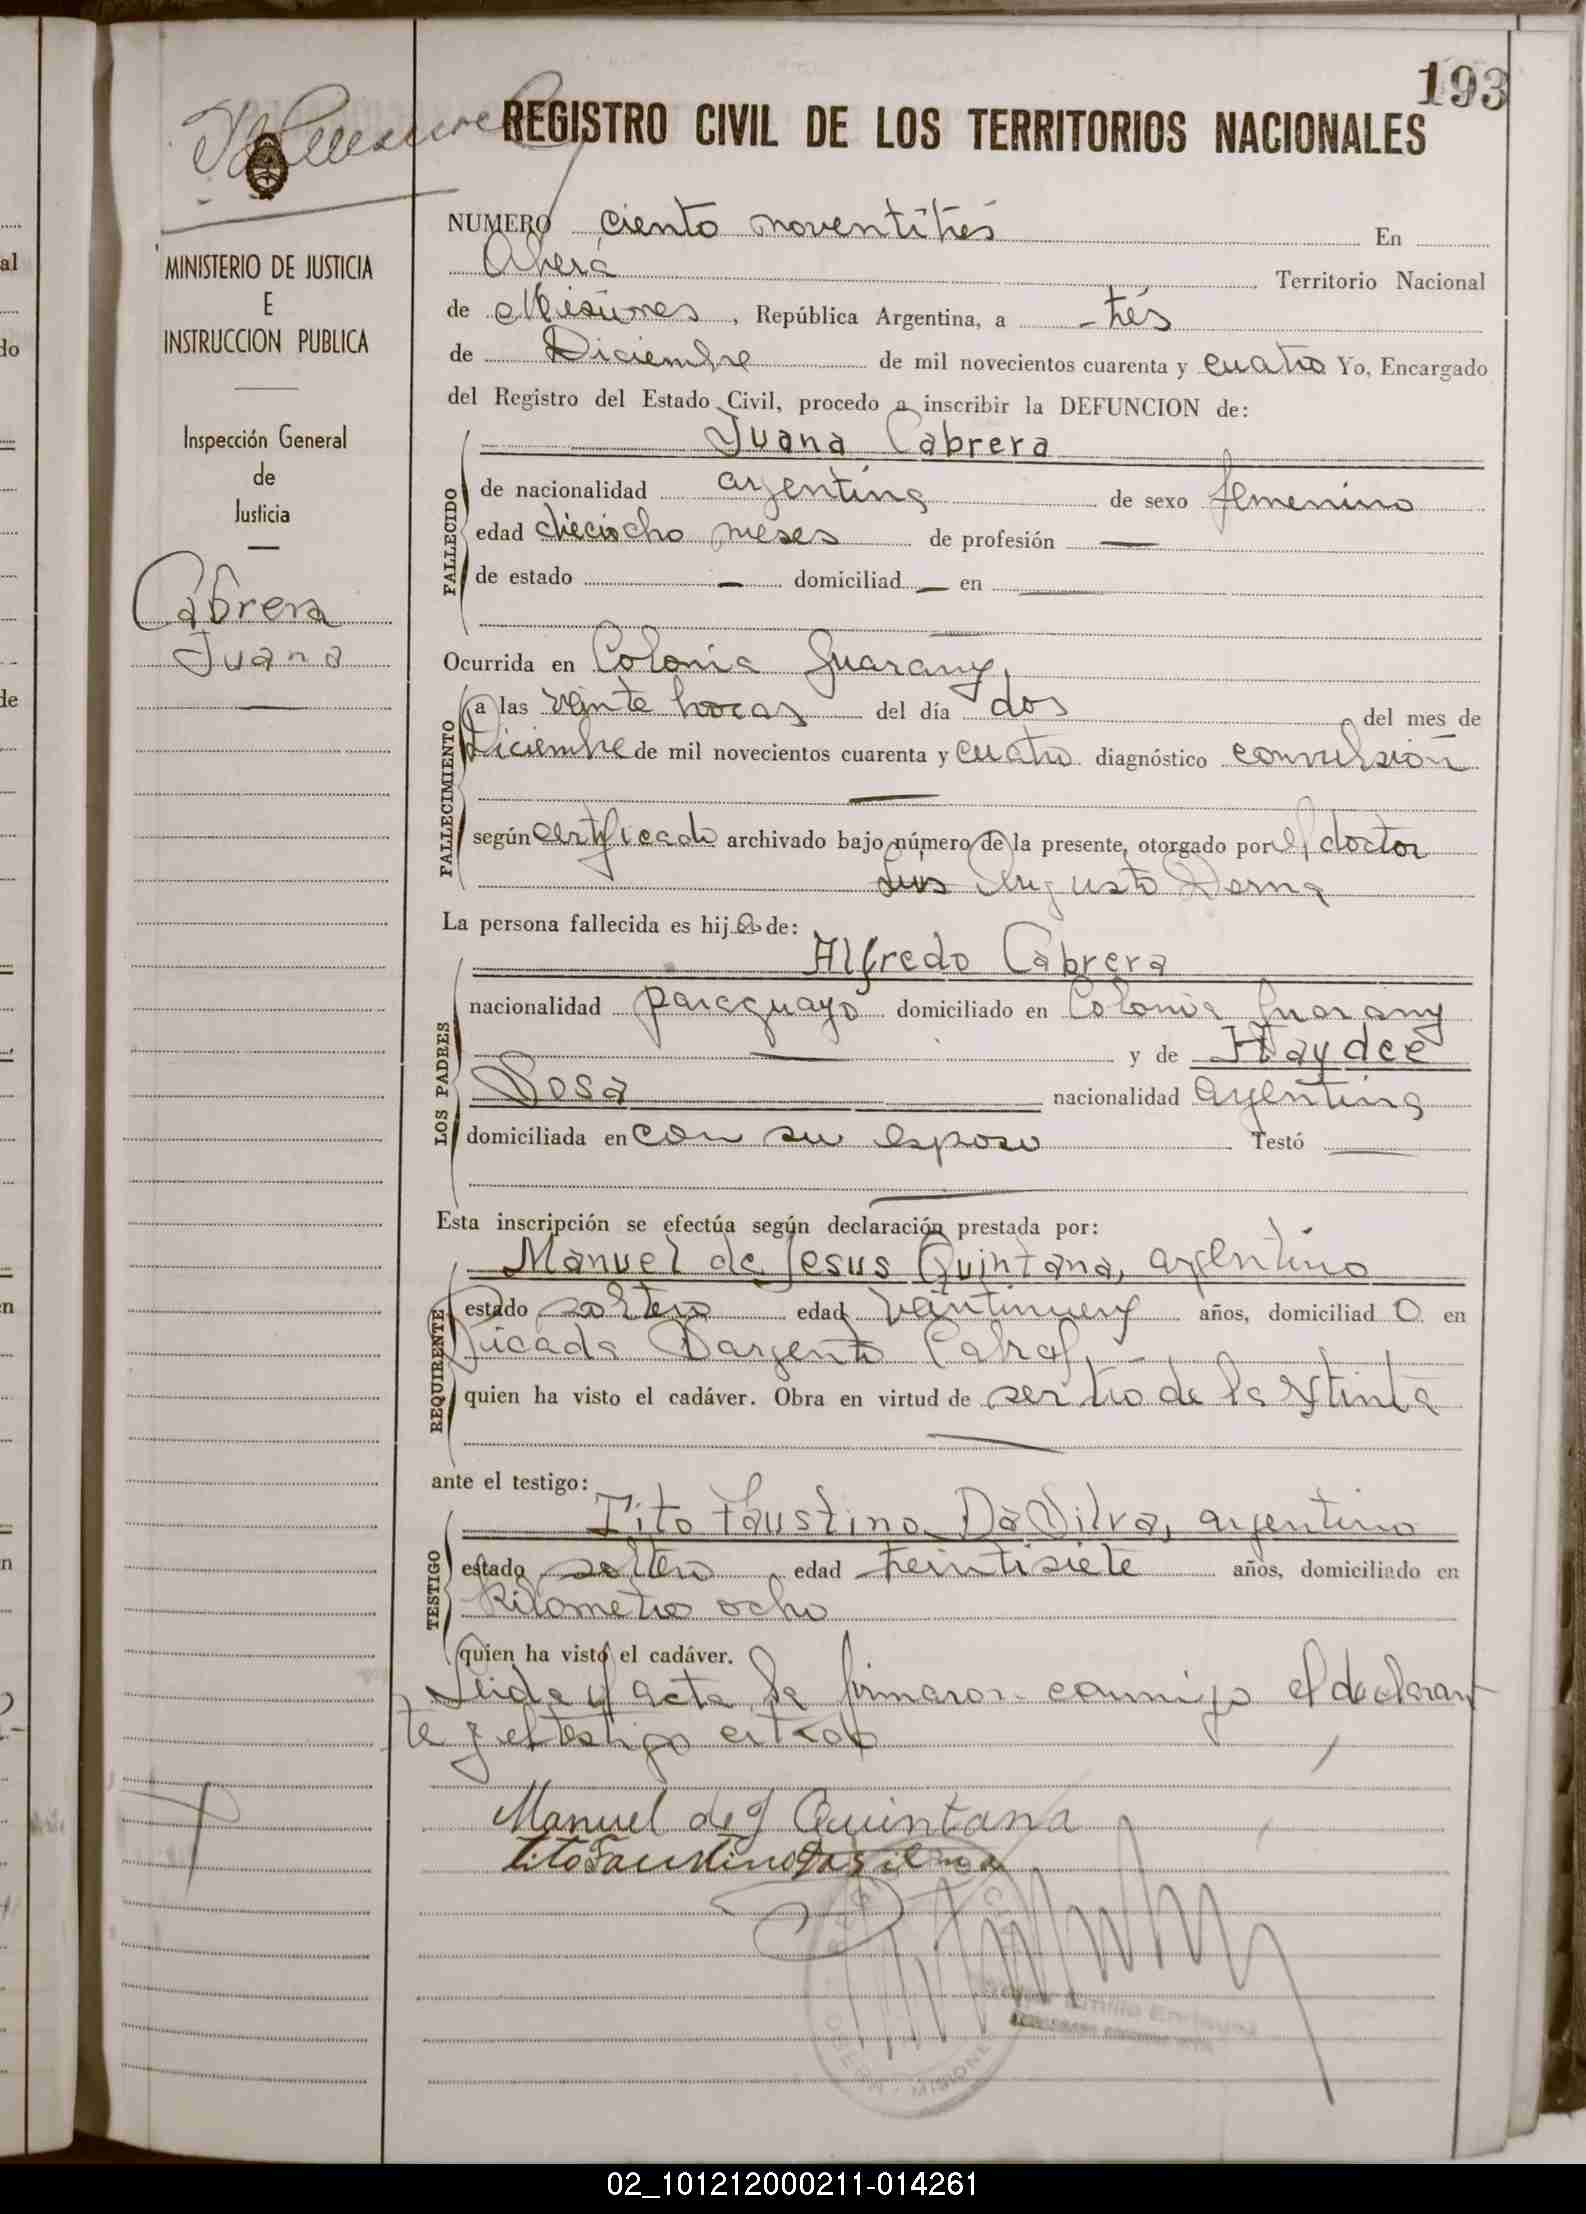 193
REGISTRO CIVIL DE LOS TERRITORIOS NACIONALES
MINISTERIO DE JUSTICIA
E
INSTRUCCION PUBLICA
Inspección General
de
Justicia
Cabrera
Juana
NUMERO ciento noventitrés En
Oberá Territorio Nacional
de Misiones, República Argentina, a trés
de Diciembre de mil novecientos cuarenta y cuatro Yo, Encargado
del Registro del Estado Civil, procedo a inscribir la DEFUNCION de:
Juana Cabrera
FALLECIDO
de nacionalidad argentina de sexo femenino
edad dieciocho meses de profesión —
de estado — domiciliad — en —
Ocurrida en Colonia Guarany,
FALLECIMIENTO
a las veinte horas del día dos del mes de
Diciembre de mil novecientos cuarenta y cuatro diagnóstico convulsión
según certificado archivado bajo número de la presente, otorgado por el doctor
Luis Augusto Derna
La persona fallecida es hija de:
LOS PADRES
Alfredo Cabrera
nacionalidad paraguayo domiciliado en Colonia Guarany
y de Haydee
Sosa nacionalidad argentina
domiciliada en con su esposo Testó —
Esta inscripción se efectúa según declaración prestada por:
REQUIRENTE
Manuel de Jesus Quintana, argentino
estado soltero edad veintinueve años, domiciliado en
Picada Sargento Cabral,
quien ha visto el cadáver. Obra en virtud de ser tío de la extinta
ante el testigo:
TESTIGO
Tito Faustino Da Silva, argentino
estado soltero edad treintisiete años, domiciliado en
Kilometro ocho
quien ha visto el cadáver.
Leida el acta la firmaron conmigo el declaran
te y el testigo citado
Manuel de J Quintana
Tito Faustino Da Silva
02_101212000211-014261